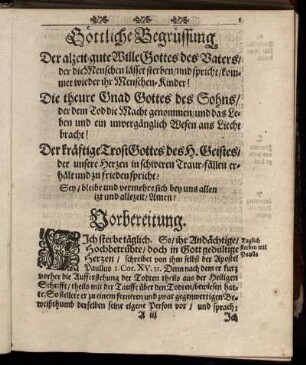 Göttliche Begrüssung
Der alzeit gute Wille Gottes des Vaters/
der die Menschen lässet sterben/und spricht/kom-
met wieder ihr Menschen-Kinder!
Die theure Gnad Gottes des Sohns/
der dem Tod die Macht genommen/und das Le-
ben und ein unvergänglich Wesen ans Liecht
bracht!
Der kräftige Trost Gottes des H. Geistes/
der unsere Herzen in schweren Traur-fällen er-
hält und zu frieden spricht/
Sey/bleibe und vermehre sich bey uns allen
itzt und allezeit/Amen!
Vorbereitung.
Ich sterbe täglich. So/ihr Andächtige/
Hochbetrübte/doch in Gott gedultige
Herzen/schreibet von ihm selbst der Apostel
Paullus 1. Cor. XV. 31. Denn nach dem er kurz
vorher die Aufferstehung der Todten theils aus der Heiligen
Schrifft/theils mit der Tauffe über den Todten/bewiesen hat-
te. So stellete er zu einem ferneren und zwar gegenwertigen Be-
weißthumb derselben seine eigene Person vor/und sprach:
A iij
Ich
Täglich
sterben mit
Paullo